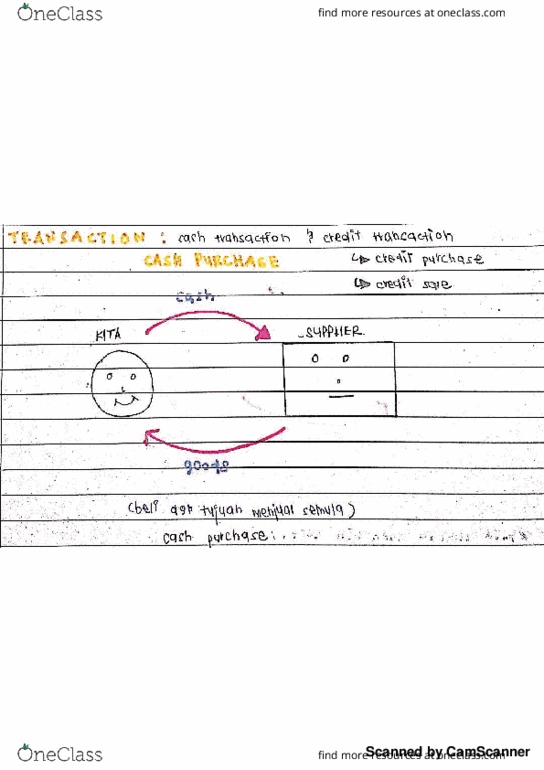 OneClass find more resources at oneclass.com
TRANSACTION : cash transaction & credit transaction
CASH PURCHASE ↳ credit purchase
↳ credit sale
cash
KITA SUPPLIER
goods
(beli dgn tujuan menjual semula)
cash purchase :
OneClass find more resources at oneclass.com
Scanned by CamScanner